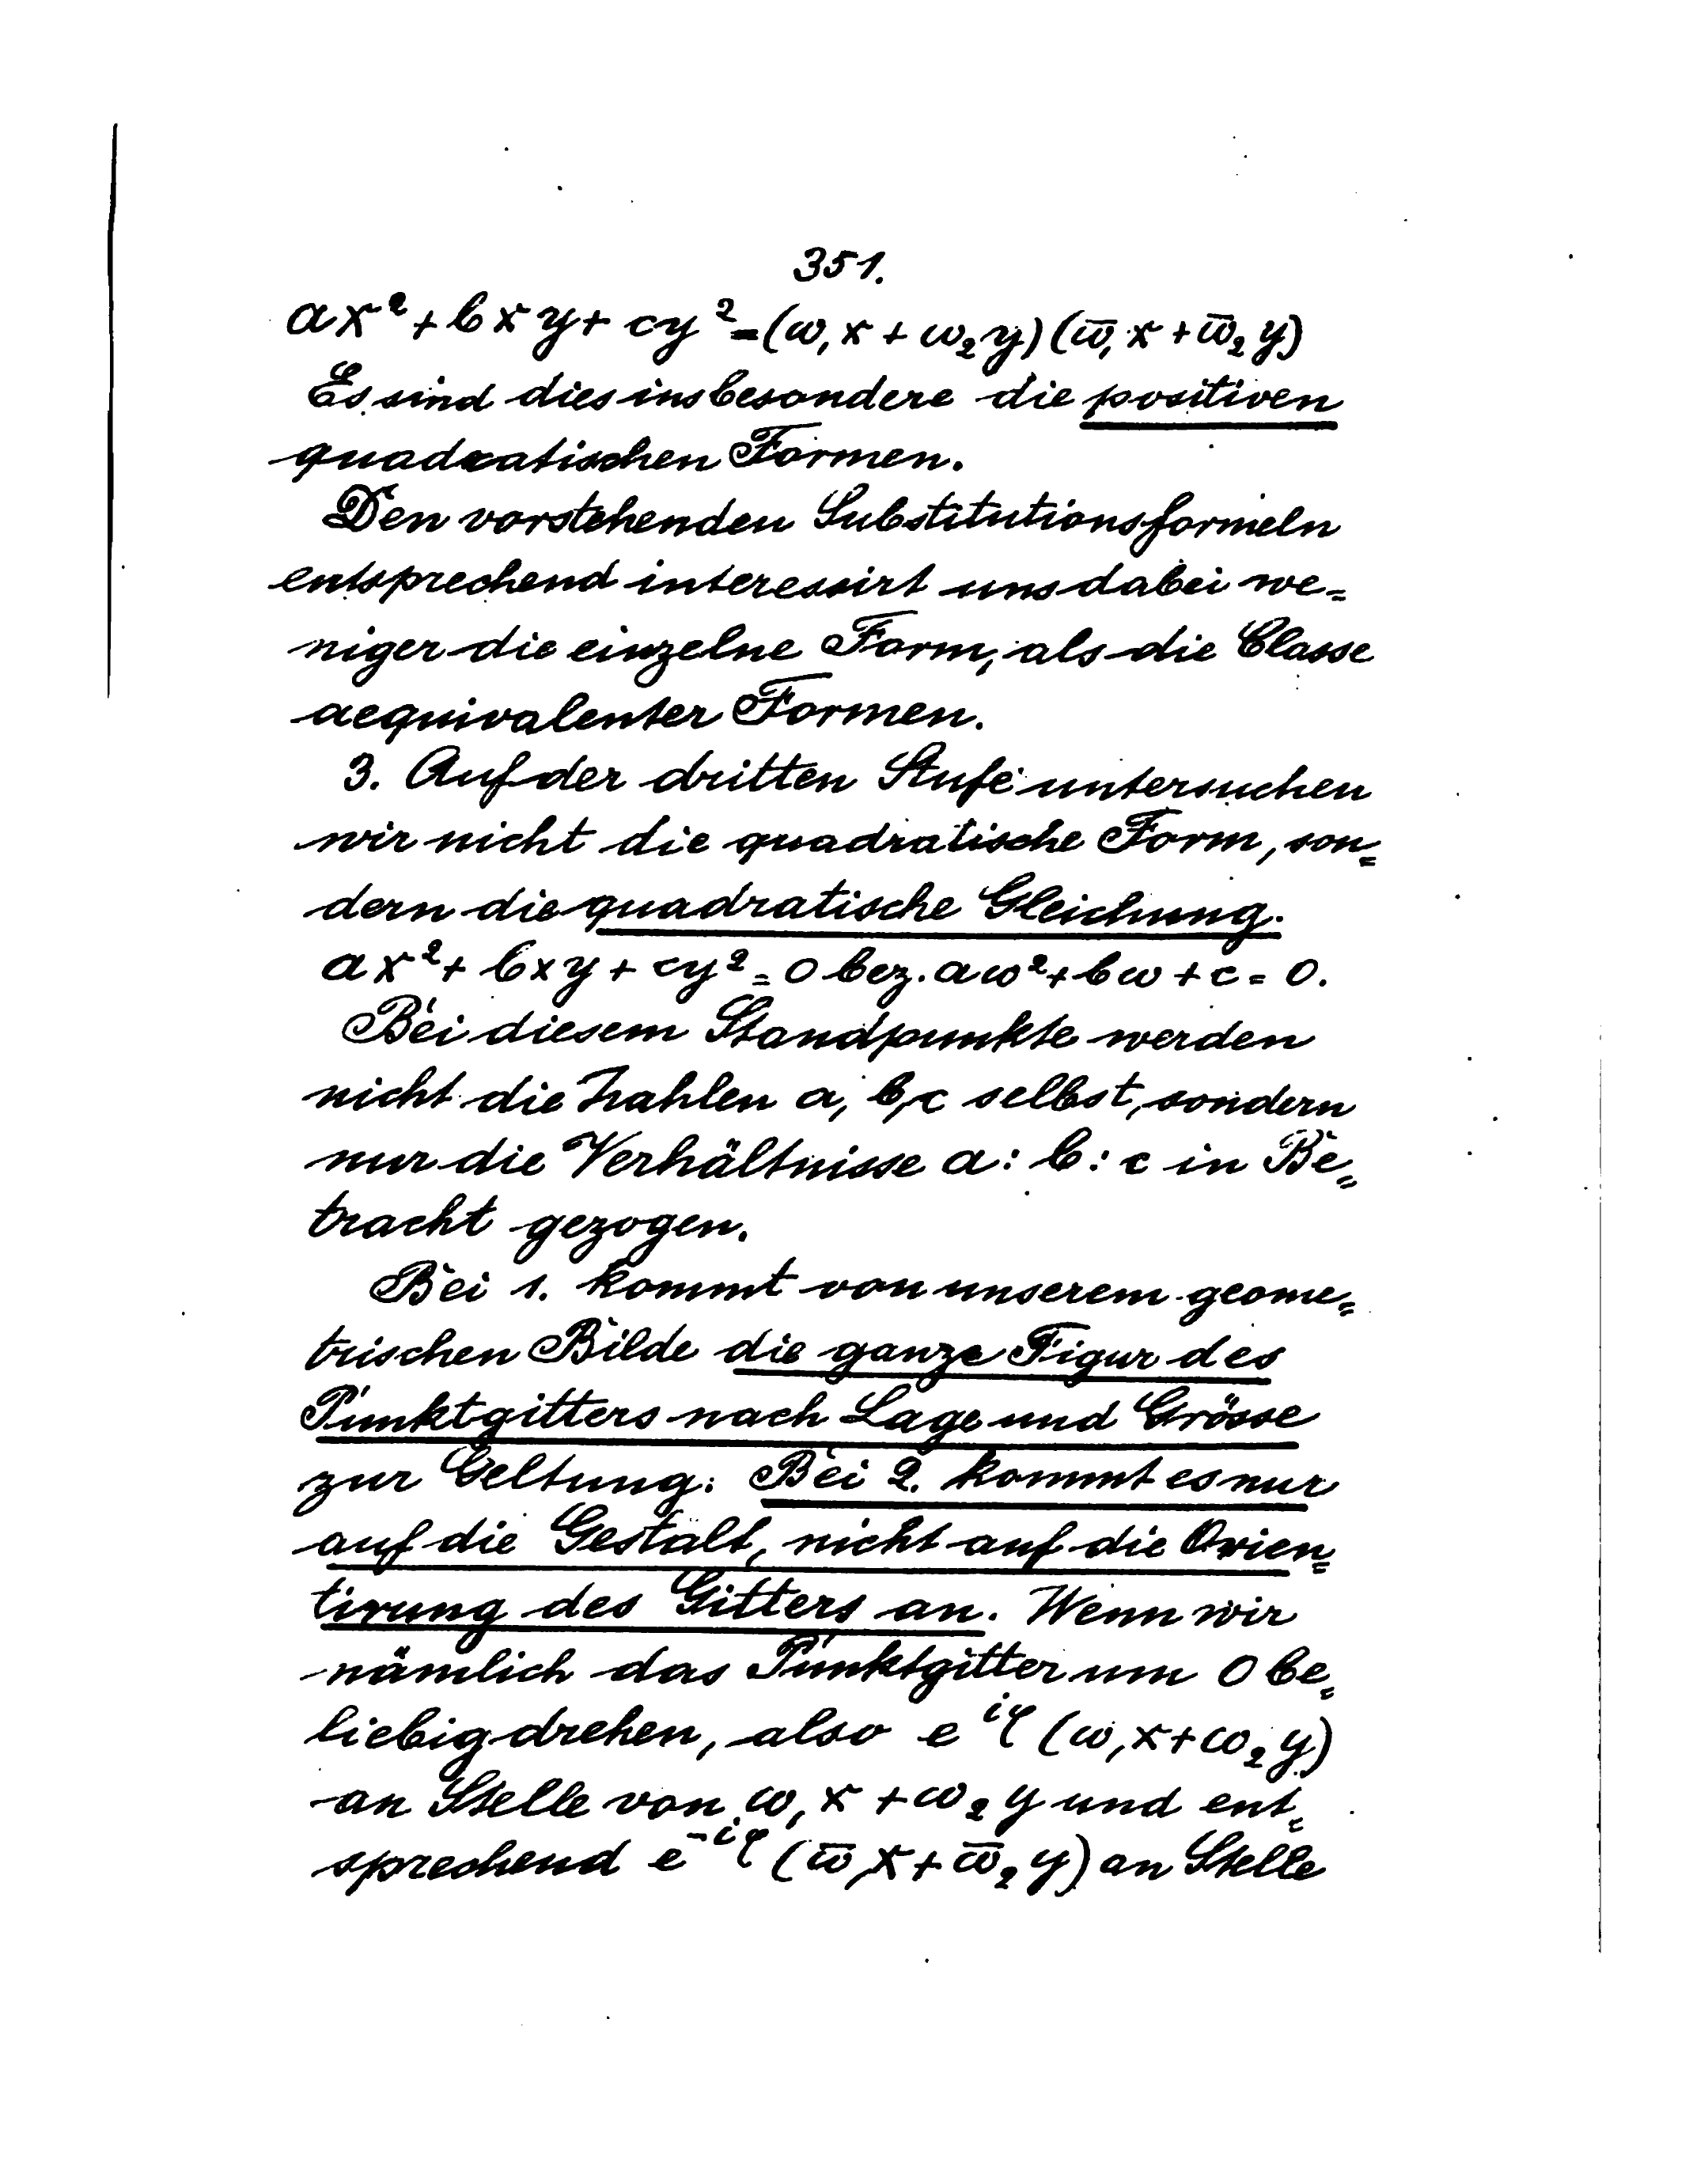 351.
ax² + bxy + cy² = (ω₁x + ω₂y)(ω̄₁x + ω̄₂y)
Es sind dies insbesondere die positiven
quadratischen Formen.
Den vorstehenden Substitutionsformeln
entsprechend interessirt uns dabei we=
niger die einzelne Form, als die Classe
aequivalenter Formen.
3. Auf der dritten Stufe untersuchen
wir nicht die quadratische Form, son=
dern die quadratische Gleichung.
ax² + bxy + cy² = 0 bez. aω² + bω + c = 0.
Bei diesem Standpunkte werden
nicht die Zahlen a, b, c selbst, sondern
nur die Verhältnisse a : b : c in Be=
tracht gezogen.
Bei 1. kommt von unserem geome=
trischen Bilde die ganze Figur des
Punktgitters nach Lage und Grösse
zur Geltung: Bei 2. kommt es nur
auf die Gestalt, nicht auf die Orien=
tirung des Gitters an. Wenn wir
nämlich das Punktgitter um O be=
liebig drehen, also e^{iφ} (ω₁x + ω₂y)
an Stelle von ω₁x + ω₂y und ent=
sprechend e^{-iφ} (ω̄₁x + ω̄₂y) an Stelle